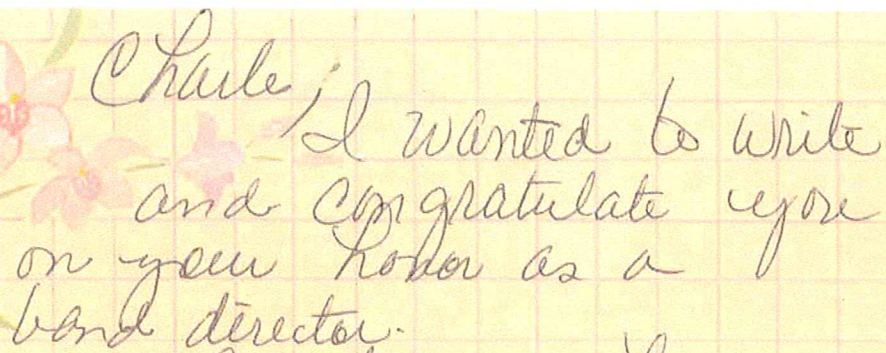 Charle,
I wanted to write
and congratulate you
on your honor as a
band director.